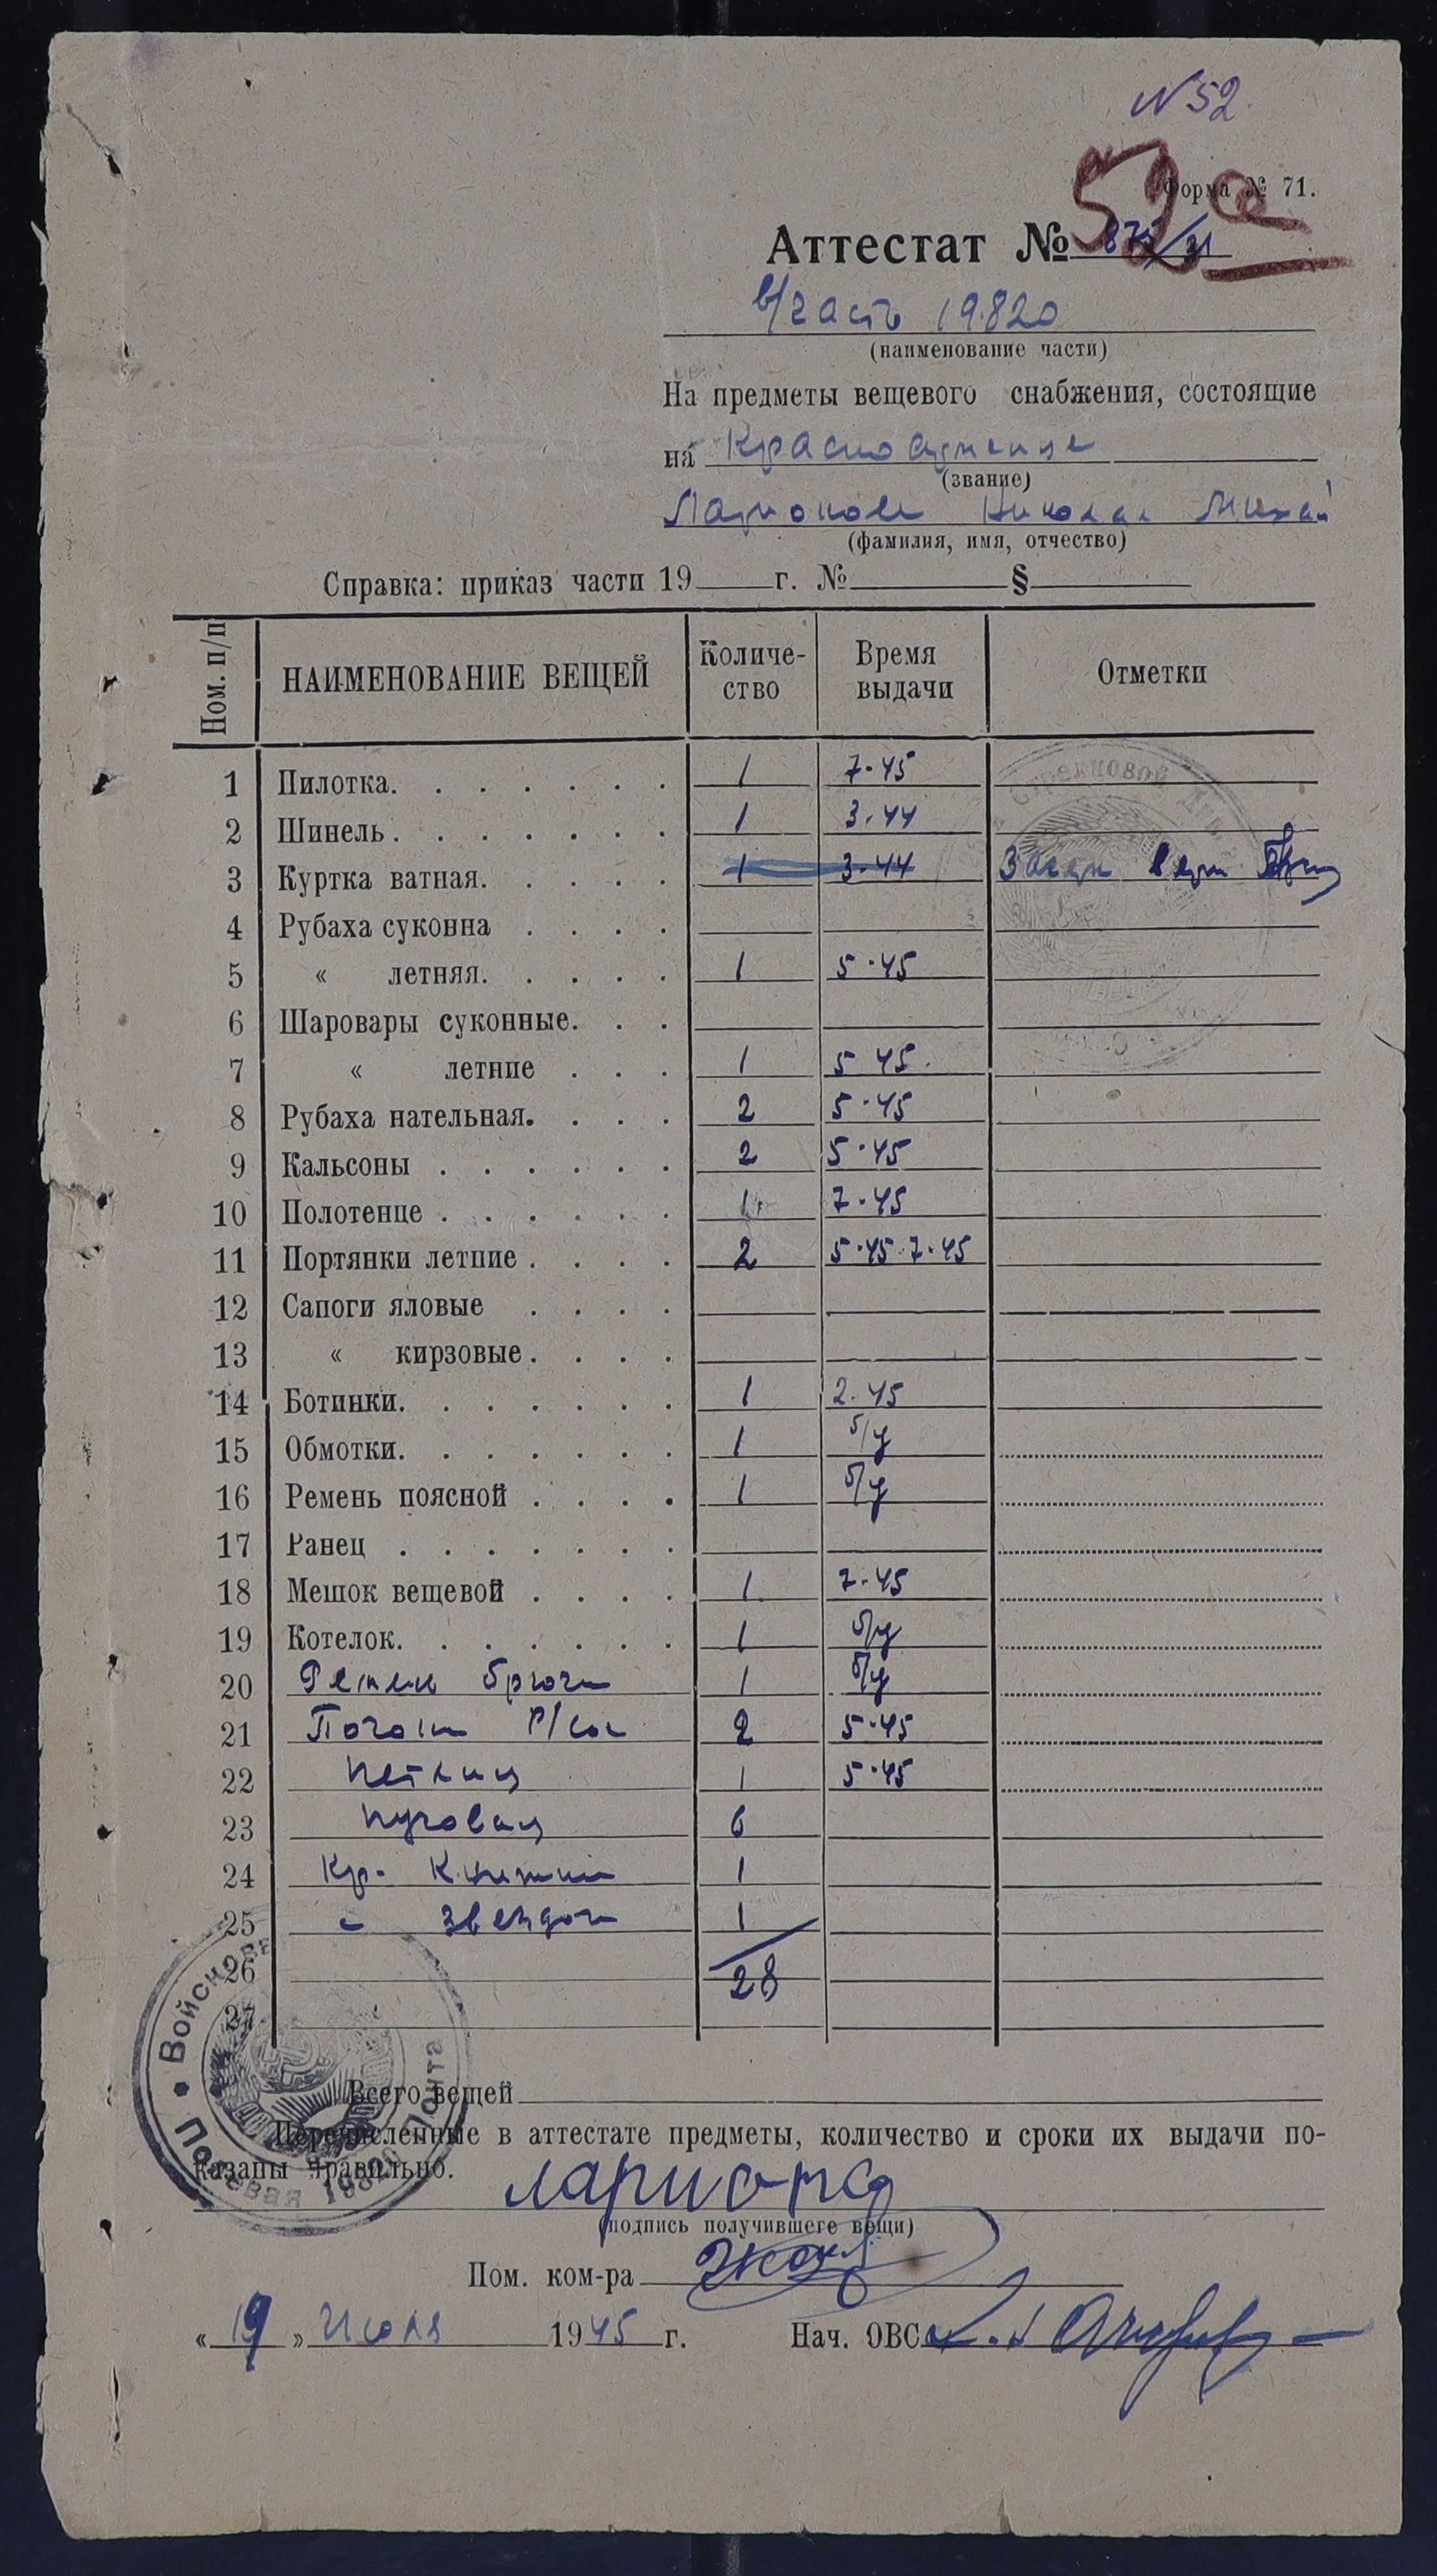 N 52
52
Форма № 71.
Аттестат № 875/31
в/часть 19820
(наименование части)
На предметы вещевого снабжения, состоящие
на Красноармейце
(звание)
Ларионове Николае Михай
(фамилия, имя, отчество)
Справка: приказ части 19 г. № §
Ном. п/п НАИМЕНОВАНИЕ ВЕЩЕЙ Количе- Время Отметки
ство выдачи
1 Пилотка. 1 7·45
2 Шинель. 1 3.44
3 Куртка ватная. 1 3.44
4 Рубаха суконна
5 « летняя. 1 5·45
6 Шаровары суконные.
7 « летние 1 5 45.
8 Рубаха нательная. 2 5·45
9 Кальсоны 2 5·45
10 Полотенце 1 7·45
11 Портянки летние 2 5·45 7·45
12 Сапоги яловые
13 « кирзовые
14 Ботинки. 1 2.45
15 Обмотки. 1 б/у
16 Ремень поясной 1 б/у
17 Ранец
18 Мешок вещевой 1 7·45
19 Котелок. 1 б/у
20 Ремень брючн 1 б/у
21 Погоны 2 5·45
22 Петлиц 1 5·45
23 Пуговиц 6
24 Кр. Книжки 1
25 " Звездоч 1
26 28
27
Всего вещей
Перечисленные в аттестате предметы, количество и сроки их выдачи по-
казаны правильно.
Ларионов
(подпись получившего вещи)
Пом. ком-ра
« 19 » Июля 1945 г. Нач. ОВС
Войсковая
Полевая Почта
19820
Стрелковой